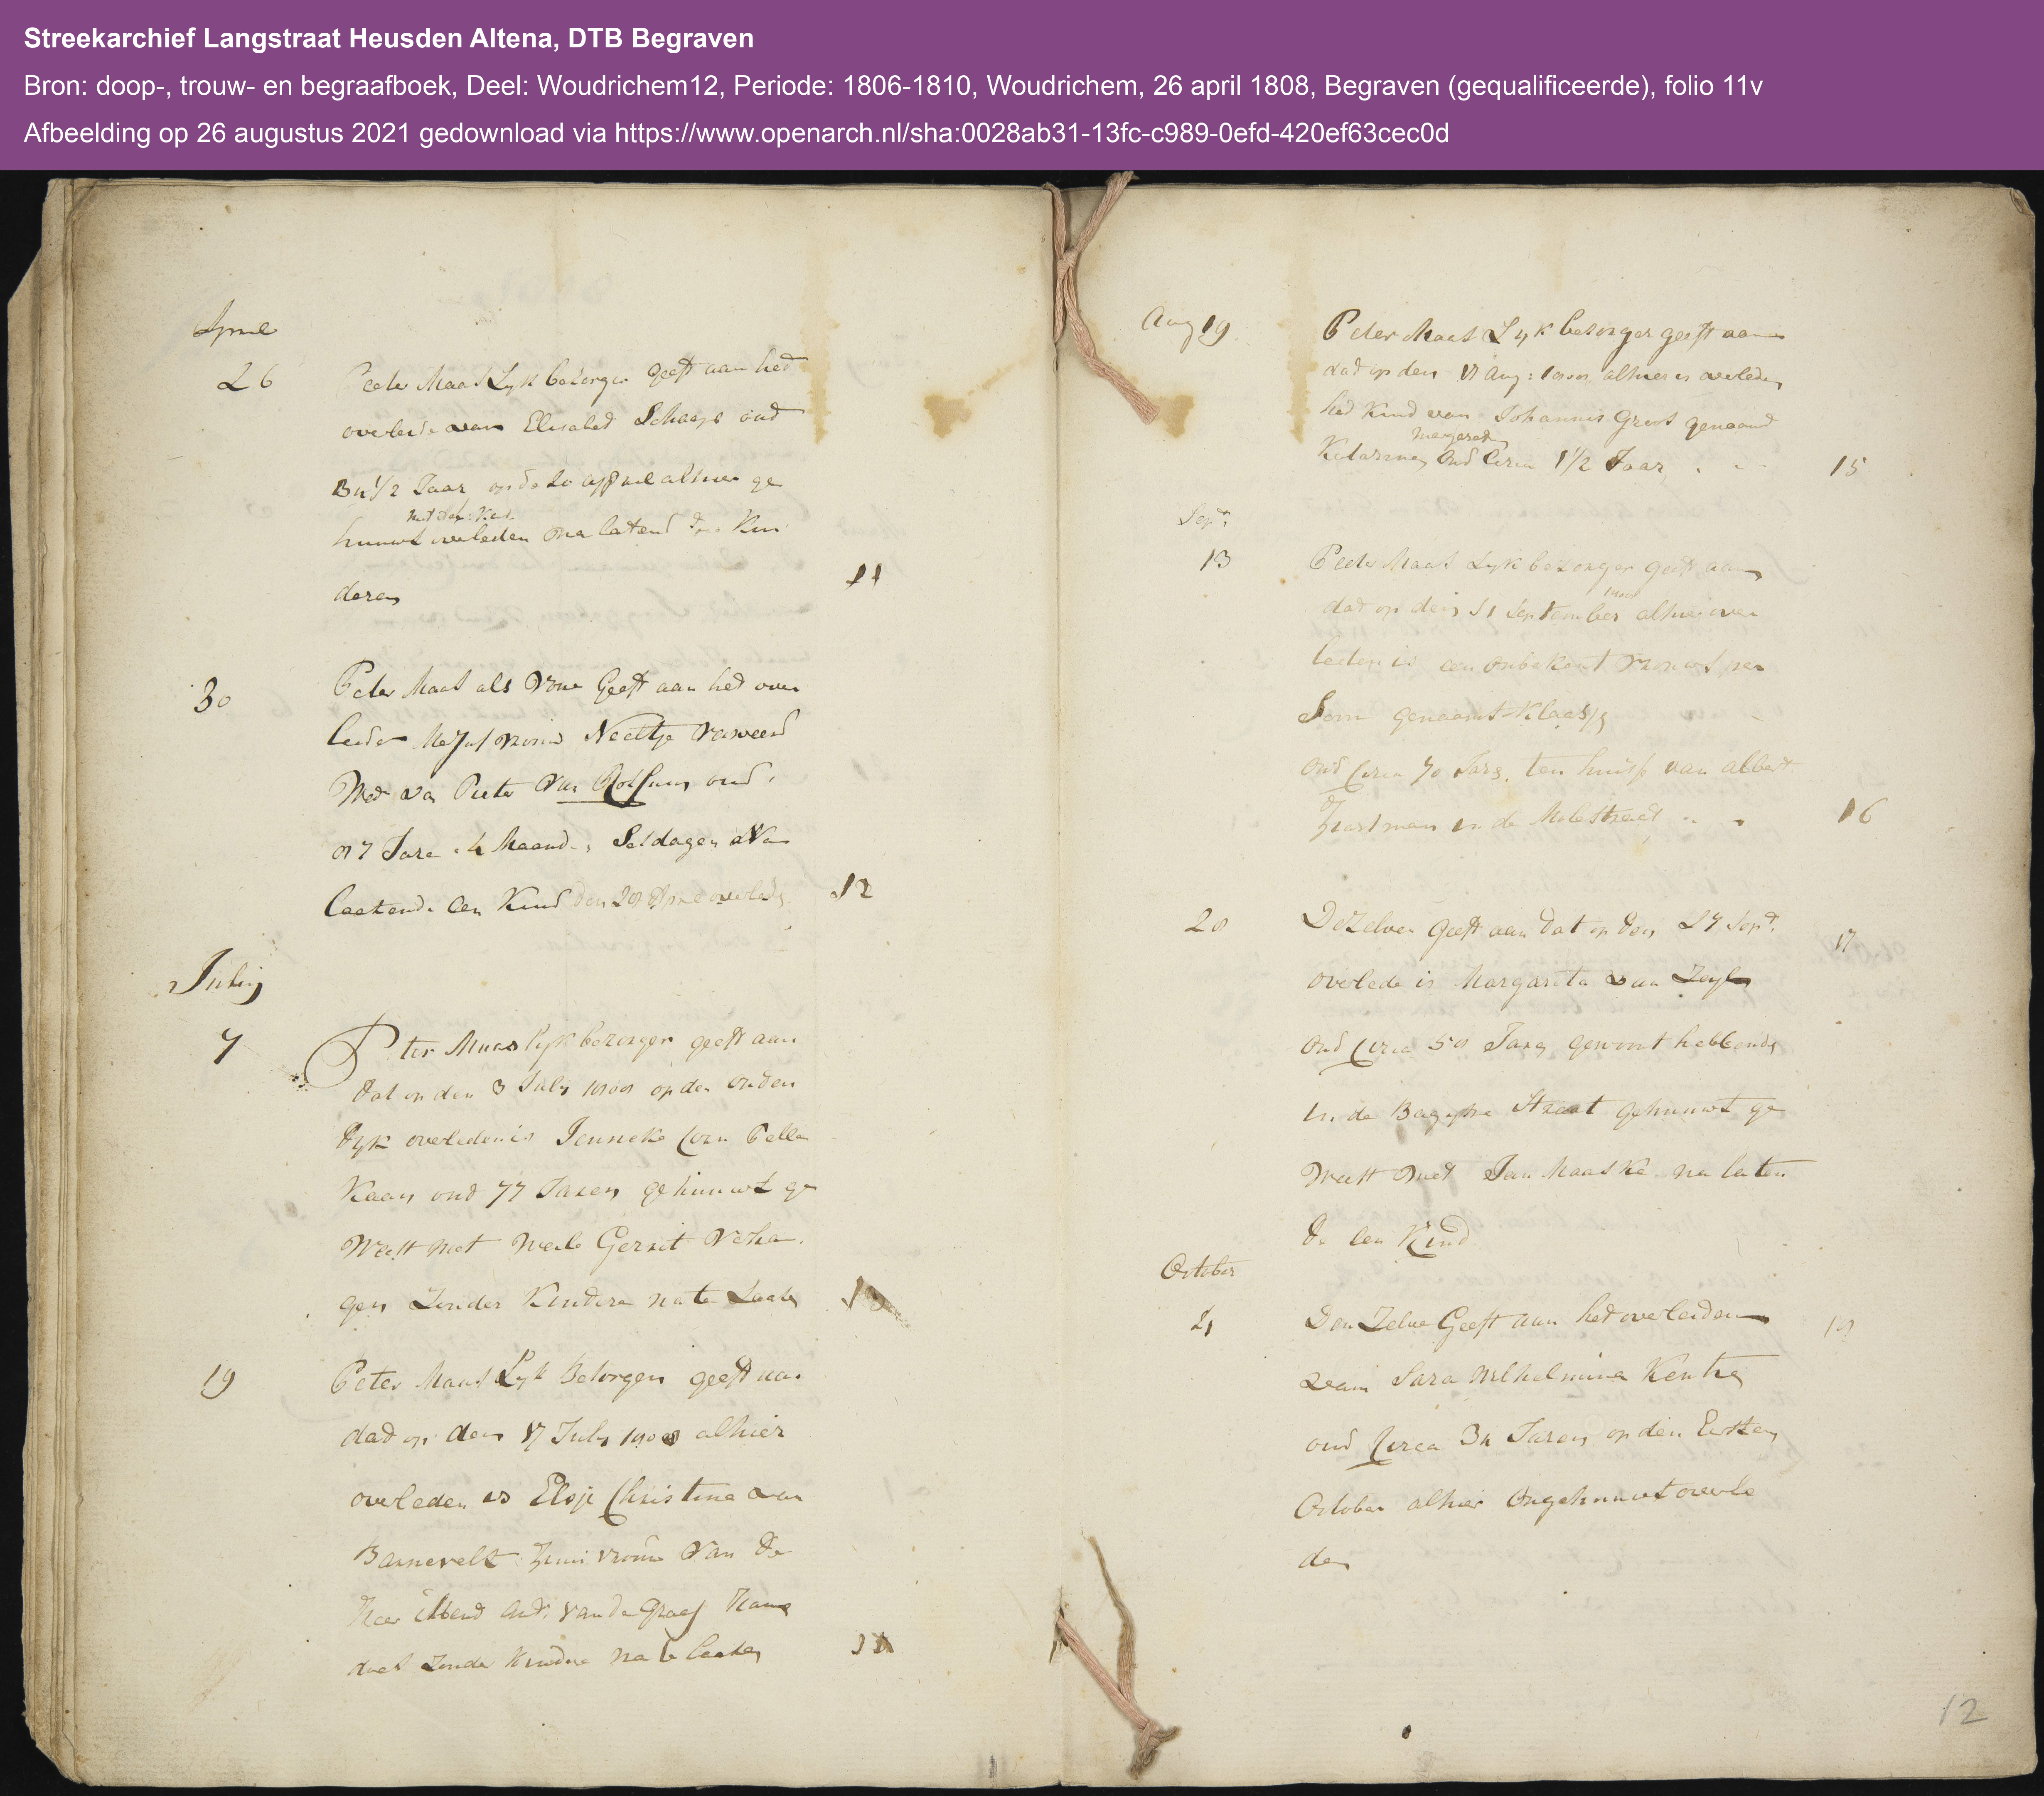 Streekarchief Langstraat Heusden Altena, DTB Begraven
Bron: doop-, trouw- en begraafboek, Deel: Woudrichem12, Periode: 1806-1810, Woudrichem, 26 april 1808, Begraven (gequalificeerde), folio 11v
Afbeelding op 26 augustus 2021 gedownload via https://www.openarch.nl/sha:0028ab31-13fc-c989-0efd-420ef63cec0d
April
26 Peeter Maas Lyk bezorger geeft aan het
overleide van Elisabed Schaaps oud
1/2 Jaar alhier ge
huuwt overleden nalatend Kin
deren 11
30 Peter Maas als vore Geeft aan het over
leiden Mejufvrouw Neeltje
Wed van Pieter van oud
87 Jare 4 Maand. Ses dagen Na
laatende een Kind den 28 April overleden 12
July
7 Peter Maas lyk bezorger geeft aan
dat op den 3 July 1808 op den ouden
dyk overleden is Jenneke Corn Pelle
Kaan oud 77 Jaren gehuuwt ge
Weest met Gerrit Verha
gen Zonder Kindere na te Laaten 13
19 Peter Maas Lyk Bezorger geeft aan
dat op den 17 July 1808 alhier
overleden is Elsje Christina van
Barnevelt vrouw van de
Heer van de Graaf
Zonder Kindere na te laaten
Aug 19 Peter Maas Lyk bezorger geeft aan
dat op den 17 Aug: 1808 alhier is overleden
het Kind van Johannis Groot genaamd
Margareta
Katarina Oud Circa 1 1/2 Jaar 15
Sept.
13 Peeter Maas Lyk bezorger geeft aan
1808
dat op den 11 September alhier over
leden is een onbekent vrouws per
Soon genaamt Klaasje
Oud Circa 70 Jare, ten huise van Albert
in de Molestraat 16
28 Dezelven geeft aan dat op den 27 Sept. 17
overlede is Margareta van Zeyl
Oud Circa 58 Jare gewoont hebbende
in de Bagyne Straat gehuuwt ge
Weest met Jan Maaske na laten
de een Kind
October
Den Zelve Geeft aan het overleiden 18
van Sara Wilhelmina
oud Circa 34 Jaren op den Eersten
October alhier Ongehuuwt overle
den
12